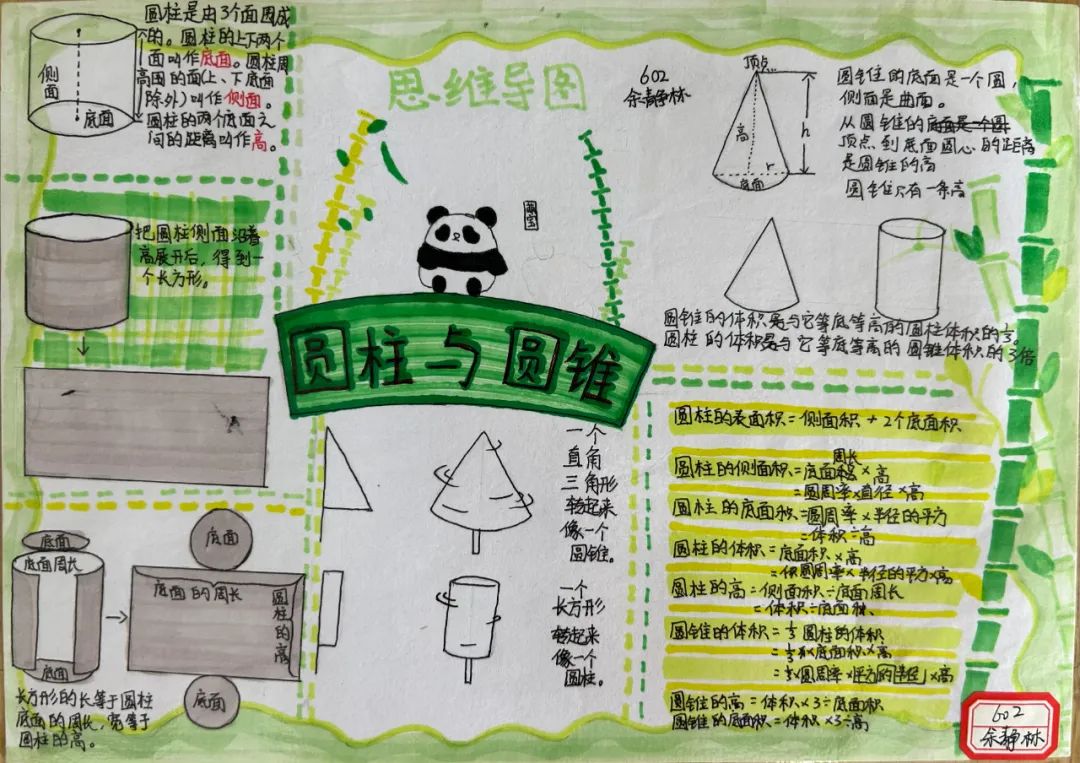 思维导图
602
余静林
圆柱与圆锥
侧面
底面
高
圆柱是由3个面围成
的。圆柱的上下两个
面叫作底面。圆柱周
围的面(上、下底面
除外)叫作侧面。
圆柱的两个底面之
间的距离叫作高。
把圆柱侧面沿着
高展开后,得到一
个长方形。
底面
底面周长
底面
底面
底面的周长
圆柱的高
底面
长方形的长等于圆柱
底面的周长,宽等于
圆柱的高。
一个
直角
三角形
转起来
像一个
圆锥。
一个
长方形
转起来
像一个
圆柱。
顶点
高
h
r
底面
圆锥的底面是一个圆,
侧面是曲面。
从圆锥的底面是一个圆
顶点到底面圆心的距离
是圆锥的高
圆锥只有一条高
圆锥的体积是与它等底等高的圆柱体积的⅓。
圆柱的体积是与它等底等高的圆锥体积的3倍
圆柱的表面积=侧面积+2个底面积
圆柱的侧面积=底面周长×高
=圆周率×直径×高
圆柱的底面积=圆周率×半径的平方
=体积÷高
圆柱的体积=底面积×高
=圆周率×半径的平方×高
圆柱的高=侧面积÷底面周长
=体积÷底面积
圆锥的体积=⅓圆柱的体积
=⅓×底面积×高
=⅓×圆周率×平方的半径×高
圆锥的高=体积×3÷底面积
圆锥的底面积=体积×3÷高
602
余静林